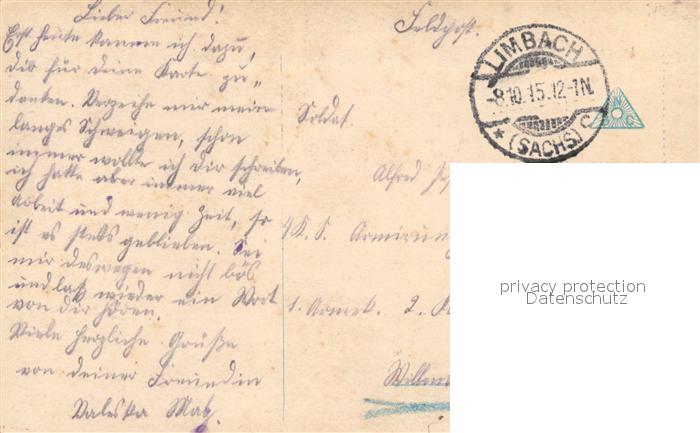 Lieber Freund!
Erst heute komme ich dazu,
dir für deine Karte zu
danken. Verzeihe mir mein
langes Schweigen, schon
immer wollte ich dir schreiben,
ich hatte aber immer viel
Arbeit und wenig Zeit, so
ist es stets geblieben. Sei
mir deswegen nicht bös
und laß wieder ein Wort
von dir hören.
Viele herzliche Grüße
von deiner Freundin
Valeska
Feldpost.
LIMBACH
-8.10.15.12-1N.
* (SACHS) C
Soldat
Alfred
K. S. Armirung
1. Armek. 2.
privacy protection
Datenschutz